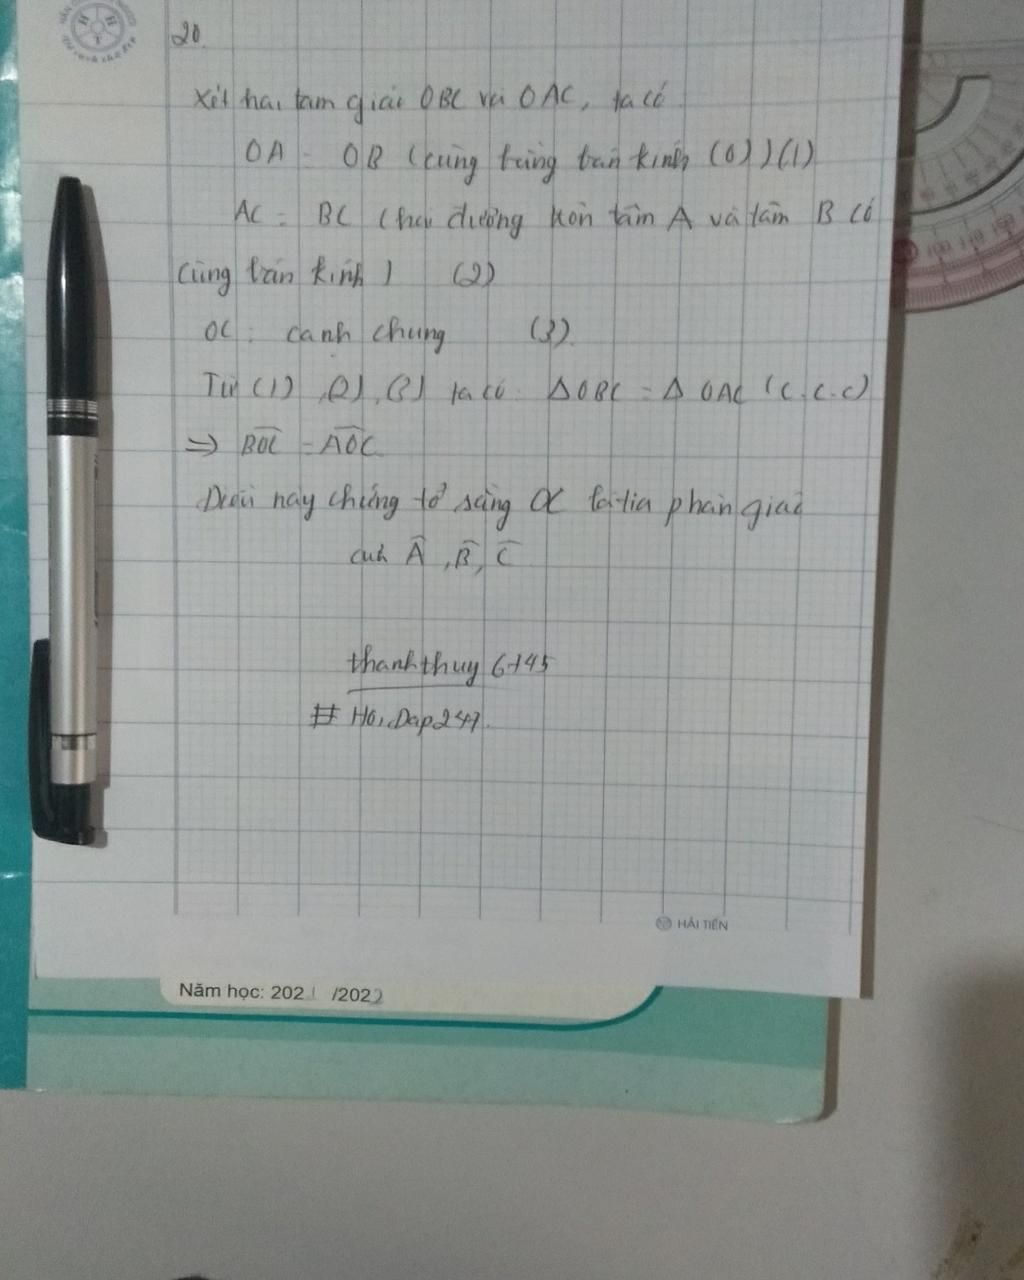 20.
Xét hai tam giác OBC và OAC, ta có
OA = OB (cùng bằng bán kính (O)) (1)
AC = BC (hai đường tròn tâm A và tâm B có
cùng bán kính) (2)
OC: cạnh chung (3).
Từ (1), (2), (3) ta có ΔOBC = Δ OAC (c.c.c)
⇒ BOC = AOC
Điều này chứng tỏ rằng OC là tia phân giác
của A, B, C
thanhthuy6745
# HoiDap247.
HẢI TIẾN
Năm học: 2021 /2022